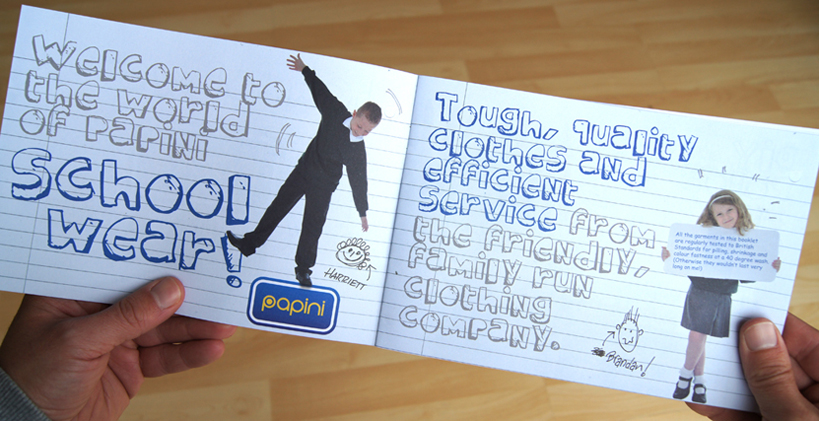 Welcome to
the world
of Papini
School
wear!
HARRIETT
papini
Tough, quality
clothes and
efficient
service from
the friendly,
family run
clothing
company.
Brandan!
All the garments in this booklet
are regularly tested to British
Standards for pilling, shrinkage and
colour fastness at a 40 degree wash.
(Otherwise they wouldn't last very
long on me!)